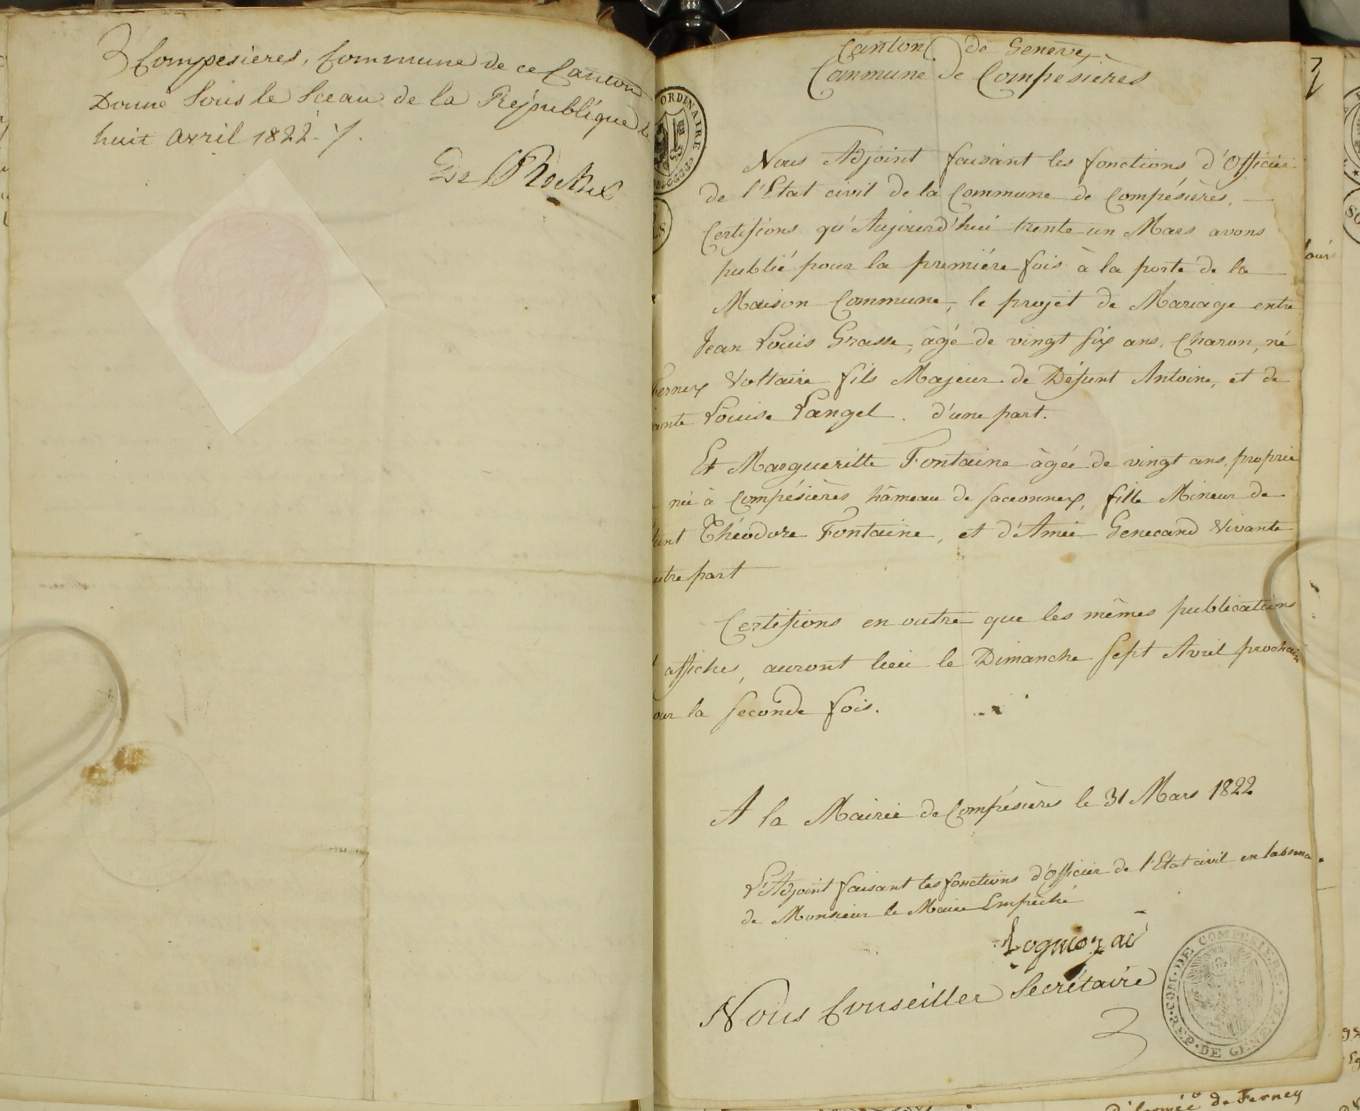 Compesières, Commune de ce Canton
Donné Sous le Sceau de la République le
huit avril 1822.
De Roches
Canton de Genève
Commune de Compésières
ORDINAIRE
Nous Adjoint faisant les fonctions d'Officier
de l'Etat civil de la Commune de Compésières.
Certifions qu'Aujourd'hui trente un Mars avons
publié pour la première fois à la porte de la
Maison Commune, le projet de Mariage entre
Jean Louis Grasse, âgé de vingt six ans, Charon, né
Ferney Voltaire fils Majeur de Défunt Antoine, et de
Louise Langel. d'une part.
Et Margueritte Fontaine âgée de vingt ans, proprié
née à Compésières hâmeau de Saconnex, fille Mineur de
Théodore Fontaine, et d'Amée Genecand Vivante
utre part
Certifions en outre que les mêmes publications
affiches, auront lieu le Dimanche Sept Avril prochain
our la seconde fois.
A la Mairie de Compésières le 31 Mars 1822
L'Adjoint faisant les fonctions d'Officier de l'Etat civil en
de Monsieur le Maire Empêché
Nous Conseiller Secrétaire
COM. DE COMPESIERES. REP. DE GENEVE
de Ferney